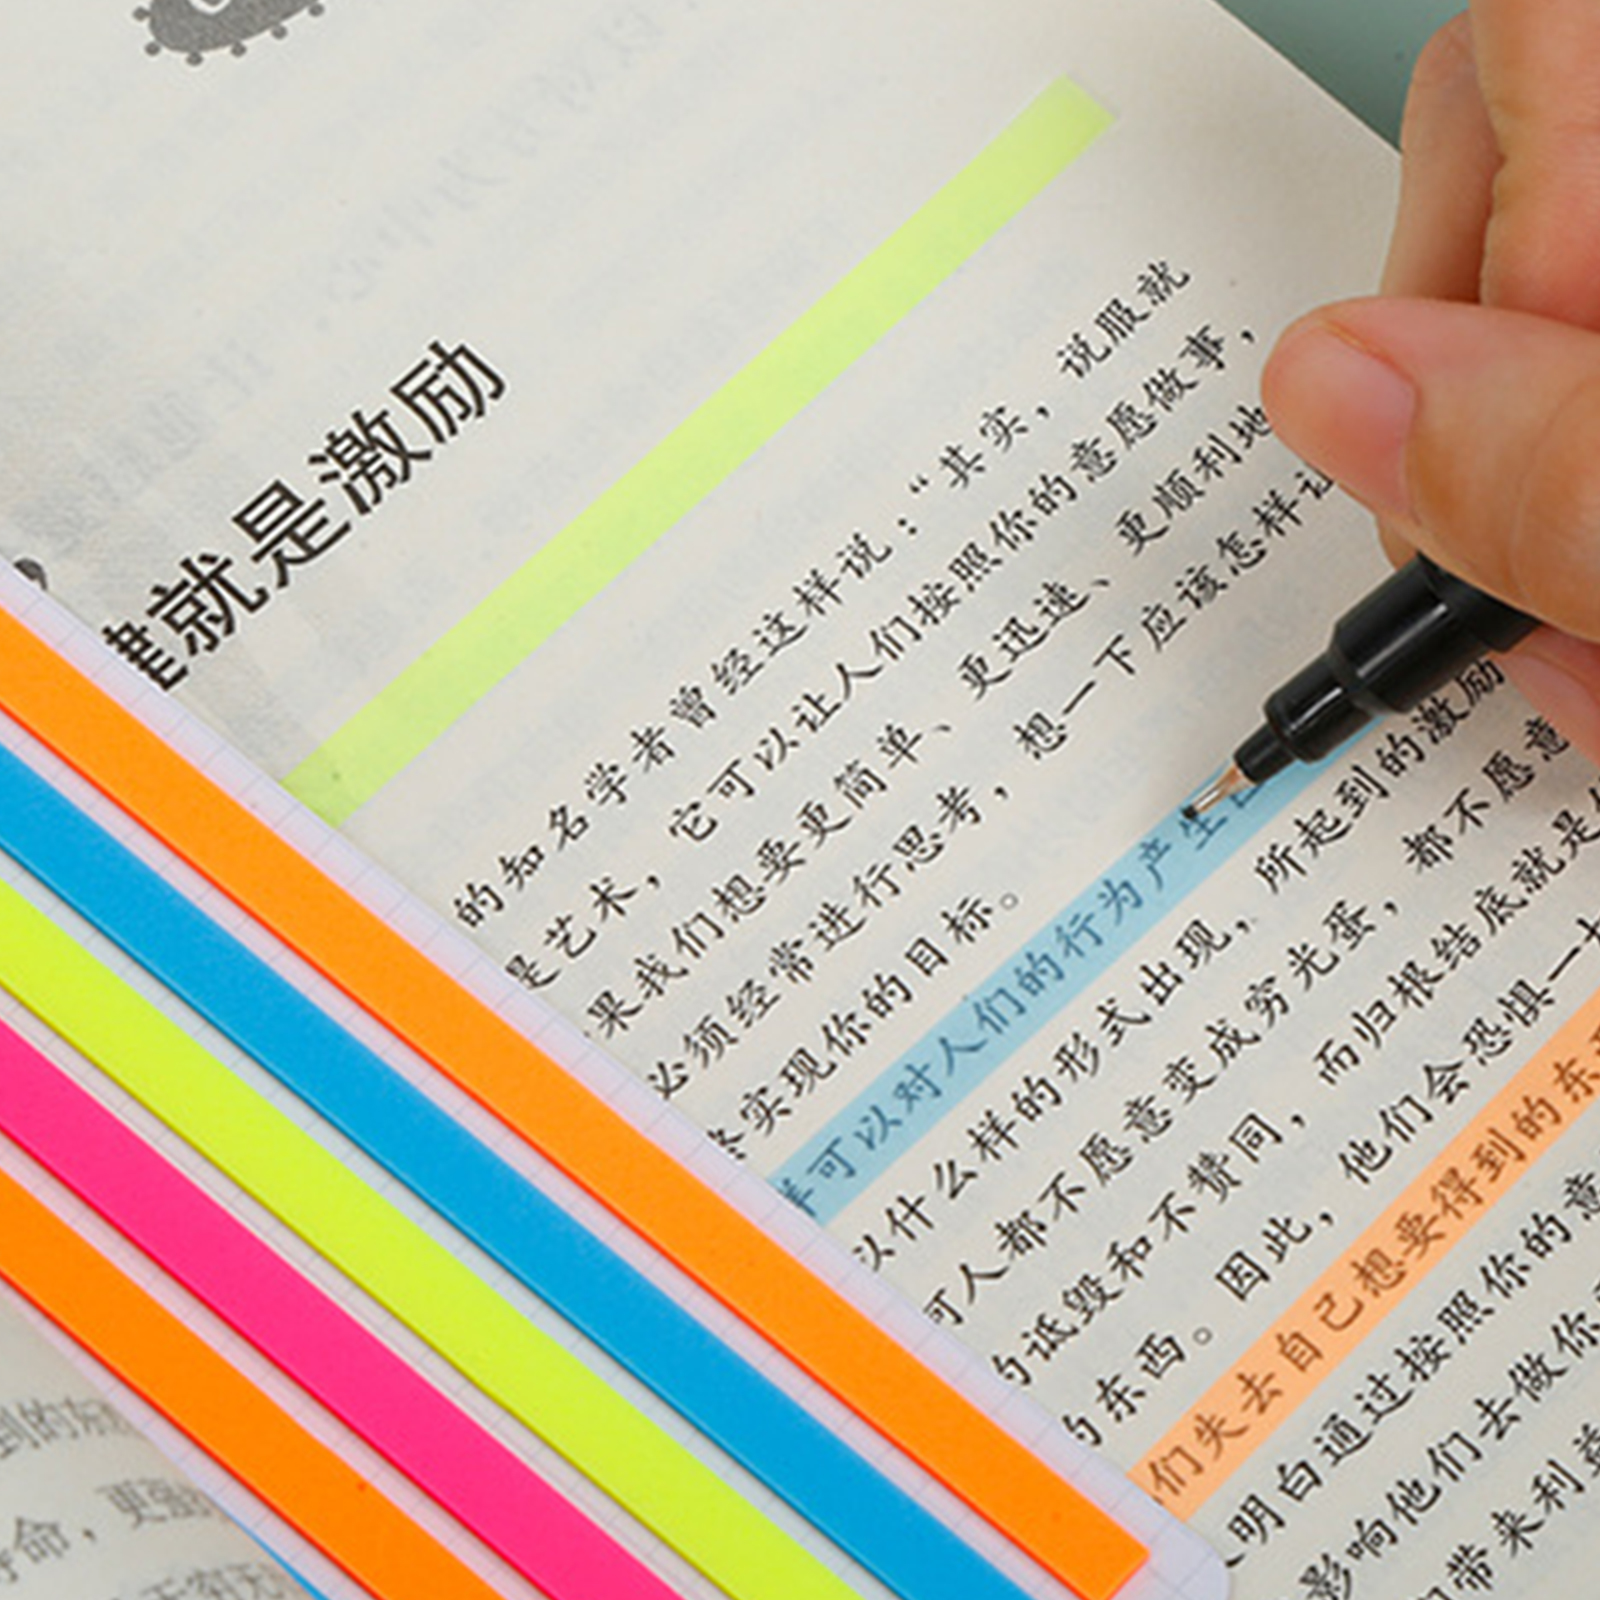 就是激励
的知名学者曾经这样说：“其实，说服就
是艺术，它可以让人们按照你的意愿做事，
果我们想要更简单、更迅速、更顺利地
必须经常进行思考，想一下应该怎样让
实现你的目标。
样可以对人们的行为产生
以什么样的形式出现，所起到的激励
可人都不愿意变成穷光蛋，都不愿意
的诋毁和不赞同，而归根结底就是
的东西。因此，他们会恐惧一
们失去自己想要得到的东
明白通过按照你的意
影响他们去做你
带来利益
到的
命，更强